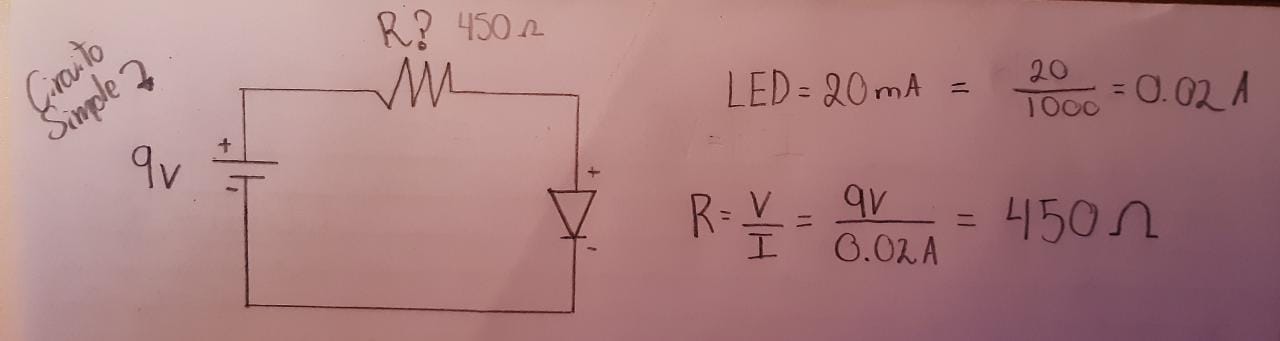 Circuito
Simple 2
R? 450Ω
9v
+
-
+
-
LED = 20mA = 20/1000 = 0.02 A
R = V/I = 9V/0.02A = 450Ω